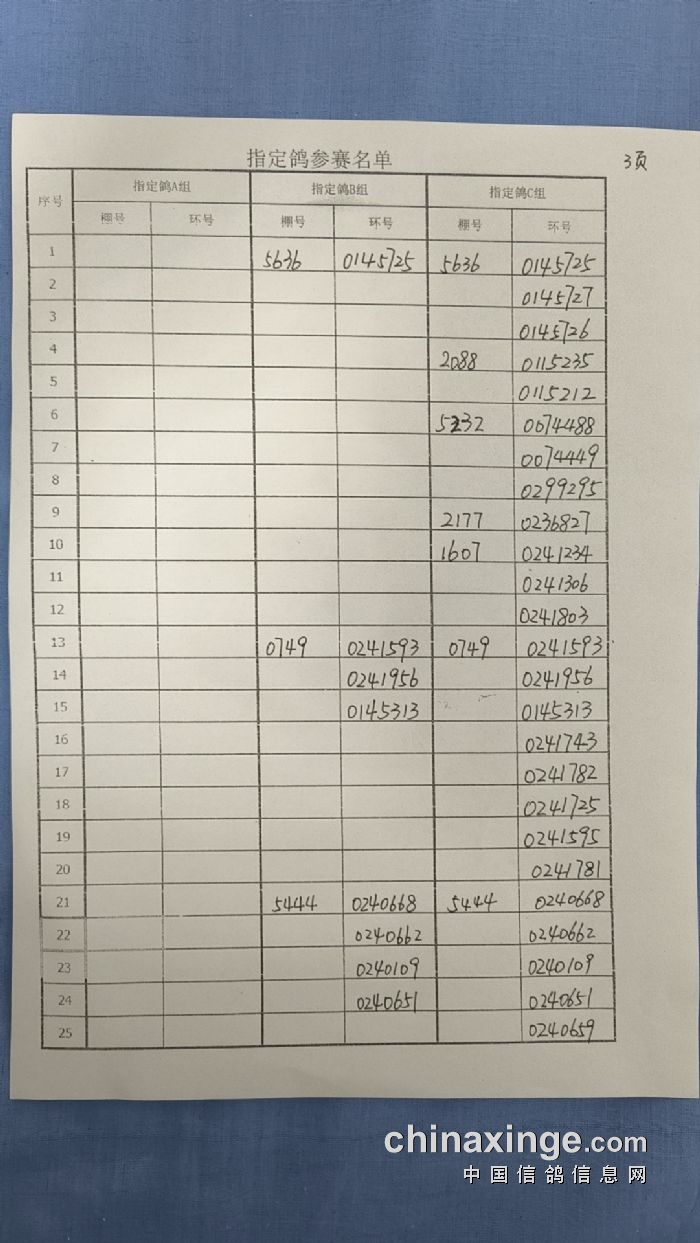 指定鸽参赛名单 3页
序号 指定鸽A组 指定鸽B组 指定鸽C组
棚号 环号 棚号 环号 棚号 环号
1 5636 0145725 5636 0145725
2 0145727
3 0145726
4 2088 0115235
5 0115212
6 5232 0074488
7 0074449
8 0299295
9 2177 0236827
10 1607 0241234
11 0241306
12 0241803
13 0749 0241593 0749 0241593
14 0241956 0241956
15 0145313 0145313
16 0241743
17 0241782
18 0241725
19 0241595
20 0241781
21 5444 0240668 5444 0240668
22 0240662 0240662
23 0240109 0240109
24 0240651 0240651
25 0240659
chinaxinge.com
中国信鸽信息网